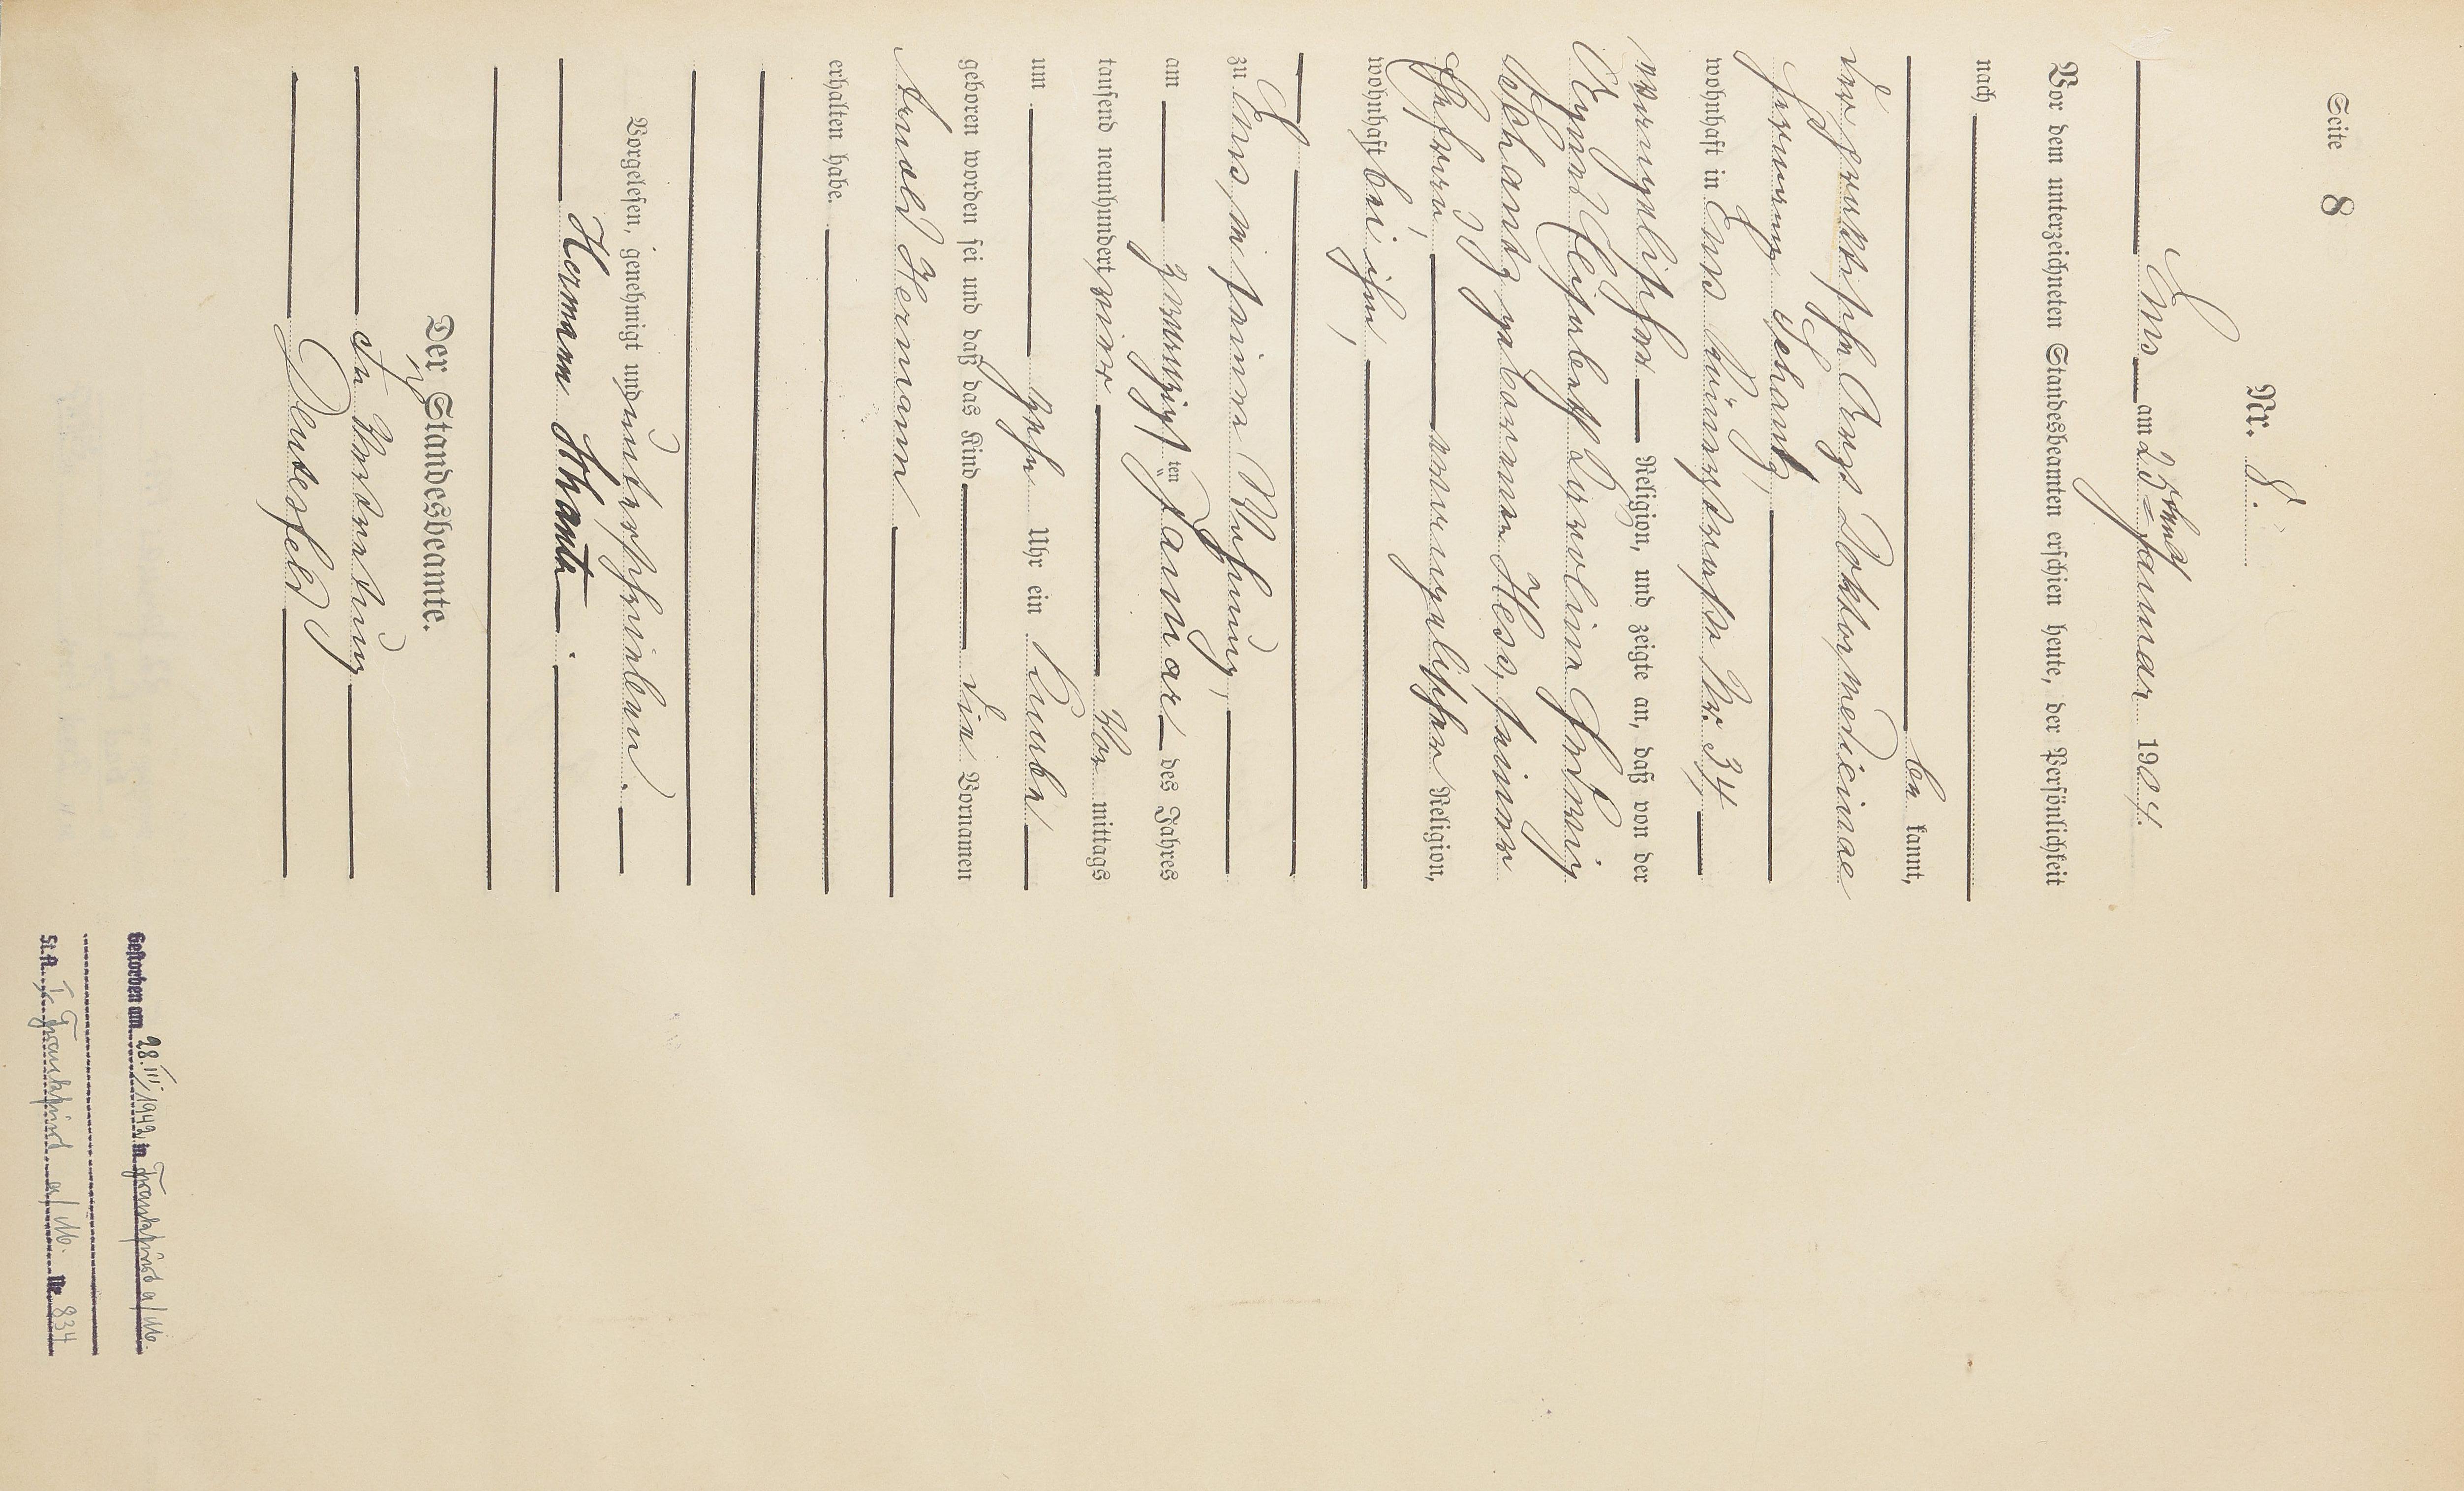 Seite 8
Nr. 8.
Ems am 25ten Januar 1904.
Vor dem unterzeichneten Standesbeamten erschien heute, der Persönlichkeit
nach
be kannt,
der praktische Arzt Doktor medicinae
Hermann Schantz,
wohnhaft in Ems, Römerstraße Nr. 34,
evangelischer Religion, und zeigte an, daß von der
Elisabeth Karoline Hedwig
Schantz geborenen Hess, seiner
Ehefrau, evangelischer Religion,
wohnhaft bei ihm,
zu Ems, in seiner Wohnung,
am zwanzigsten Januar des Jahres
tausend neunhundert vier Vor mittags
um zehn Uhr ein Knabe
geboren worden sei und daß das Kind die Vornamen
Arnold Hermann
erhalten habe.
Vorgelesen, genehmigt und unterschrieben.
Hermann Schantz.
Der Standesbeamte.
In Vertretung
Deusesfeld
Gestorben am 28.III.1942 in Frankfurt a/M.
St.A. I, Frankfurt a/M. Nr. 834